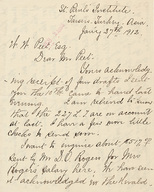 St. Paul's Institute
Tarsus, Turkey, Asia
Jan'y 27th 1912.
W. W. Peet. Esq.
Dear Mr. Peet.
Yours acknowledg-
ing receipt of four drafts sent
you the 10th came to hand last
evening. I am relieved to know
that the 227 L.T. are on account
at last. I have a few more little
checks to send soon.
I want to enquire about
sent by Mr. Rogers for Mrs
Rogers salary here. We have seen
it acknowledged in the